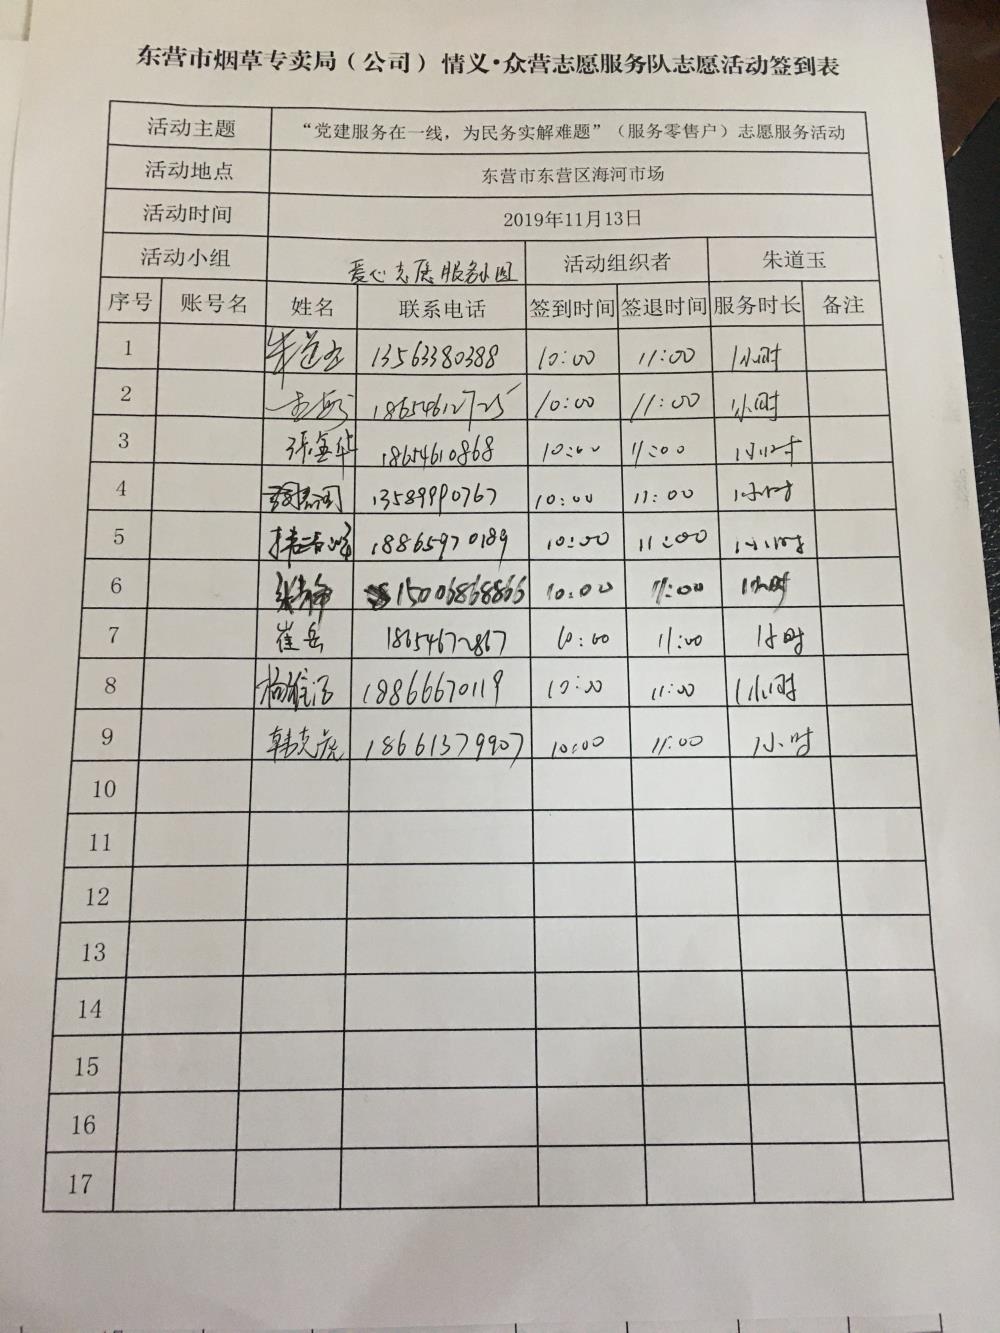 东营市烟草专卖局（公司）情义·众营志愿服务队志愿活动签到表
活动主题 “党建服务在一线，为民务实解难题”（服务零售户）志愿服务活动
活动地点 东营市东营区海河市场
活动时间 2019年11月13日
活动小组 爱心志愿服务小团 活动组织者 朱道玉
序号 账号名 姓名 联系电话 签到时间 签退时间 服务时长 备注
1 朱道玉 13563380388 10:00 11:00 1小时
2 18654612725 10:00 11:00 1小时
3 张金华 18654610868 10:00 11:00 1小时
4 13589990767 10:00 11:00 1小时
5 18865970189 10:00 11:00 1小时
6 15006868866 10:00 11:00 1小时
7 崔岳 18654672867 10:00 11:00 1小时
8 18866670119 10:00 11:00 1小时
9 韩克虎 18661379907 10:00 11:00 1小时
10
11
12
13
14
15
16
17